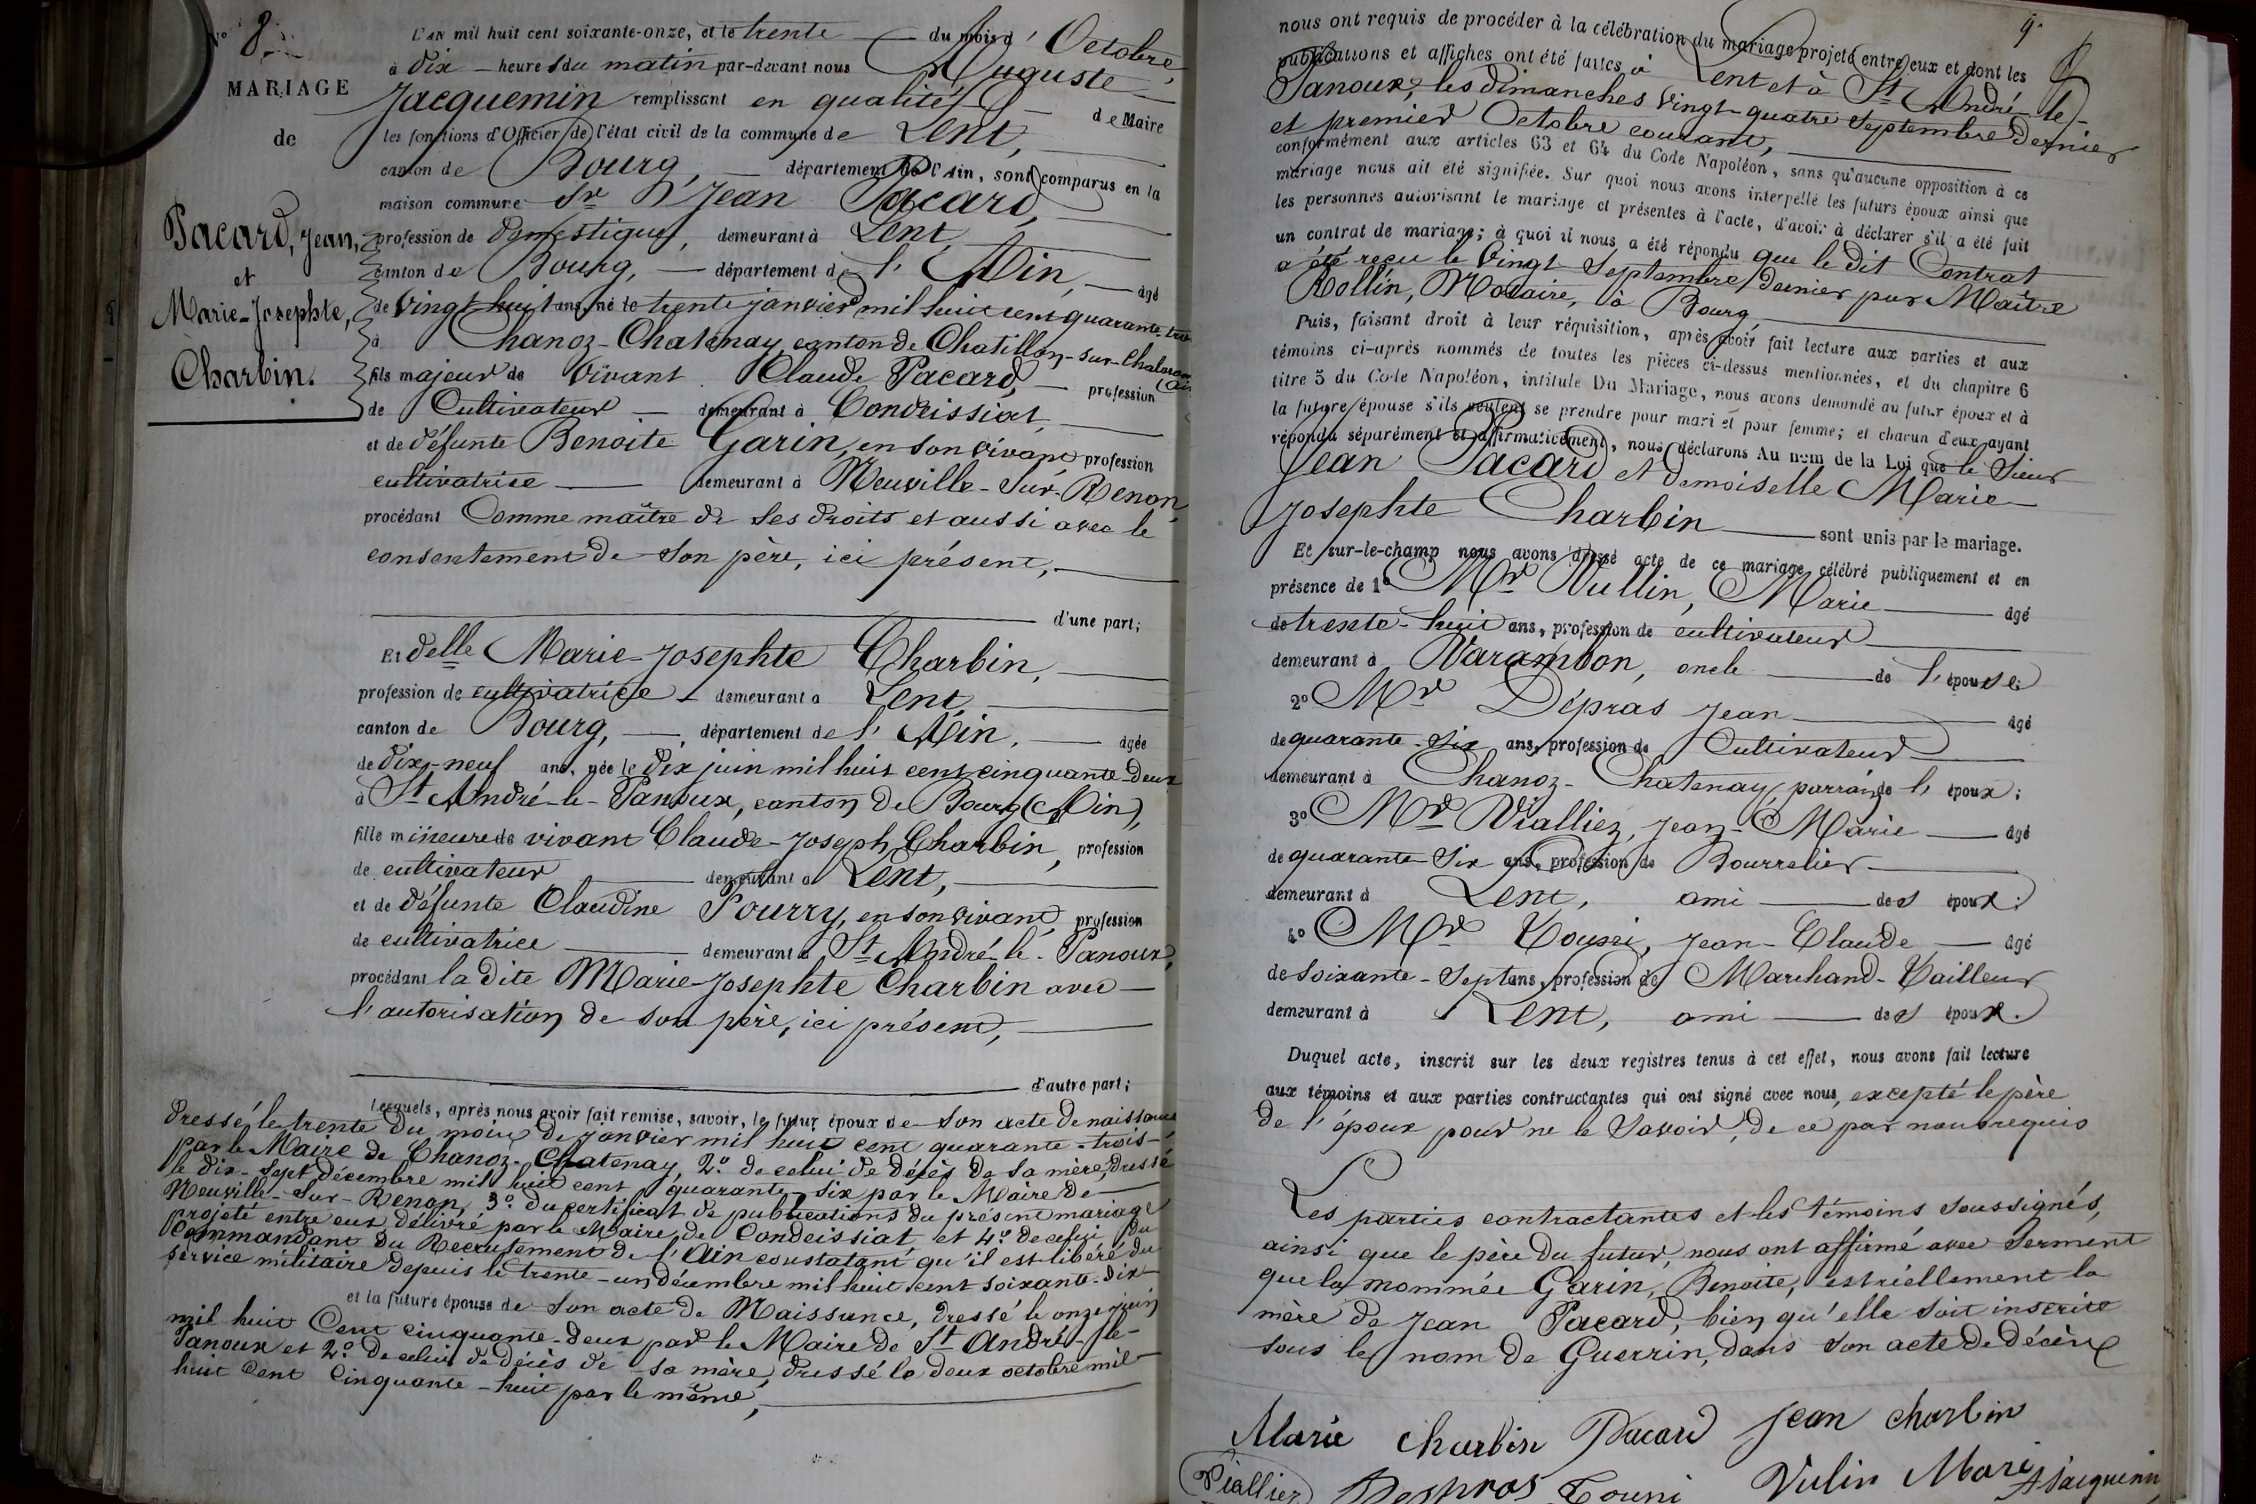 N° 8
MARIAGE
de
Pacard, Jean,
et
Marie-Josephte,
Charbin.
L'AN mil huit cent soixante-onze, et le trente du mois d'Octobre,
à dix heures du matin par-devant nous Auguste
Jacquemin remplissant en qualité de Maire
les fonctions d'Officier de l'état civil de la commune de Lent,
canton de Bourg, département de l'Ain, sont comparus en la
maison commune Sr Jean Pacard,
profession de domestique, demeurant à Lent,
canton de Bourg, département de l'Ain, âgé
de vingt-huit ans, né le trente janvier mil huit cent quarante-trois
à Chanoz-Chatenay, canton de Chatillon-sur-Chalaronne (Ain)
fils majeur de vivant Claude Pacard, profession
de Cultivateur demeurant à Condeissiat,
et de défunte Benoite Garin, en son vivant profession
cultivatrice demeurant à Neuville-sur-Renon,
procédant Comme maître de ses droits et aussi avec le
consentement de son père, ici présent,
d'une part;
Et delle Marie-Josephte Charbin,
profession de cultivatrice demeurant à Lent,
canton de Bourg, département de l'Ain, âgée
de dix-neuf ans, née le dix juin mil huit cent cinquante-deux
à St André-le-Panoux, canton de Bourg (Ain),
fille mineure de vivant Claude-Joseph Charbin, profession
de cultivateur demeurant à Lent,
et de défunte Claudine Pourry, en son vivant, profession
de cultivatrice demeurant à St André-le-Panoux,
procédant la dite Marie-Josephte Charbin avec
l'autorisation de son père, ici présent,
d'autre part;
Lesquels, après nous avoir fait remise, savoir, le futur époux de son acte de naissance
dressé le trente du mois de janvier mil huit cent quarante-trois
par le Maire de Chanoz-Chatenay, 2° de celui de décès de sa mère, dressé
le dix-sept décembre mil huit cent quarante-six par le Maire de
Neuville-sur-Renon, 3° du certificat de publications du présent mariage
projeté entre eux délivré par le Maire de Condeissiat et 4° de celui du
Commandant du Recrutement de l'Ain constatant qu'il est libéré du
service militaire depuis le trente-un décembre mil huit cent soixante-dix
et la future épouse de son acte de Naissance, dressé le onze juin
mil huit Cent cinquante-deux par le Maire de St André-le-
Panoux et 2° de celui de décès de sa mère, dressé le deux octobre mil
huit Cent Cinquante-huit par le même,
9.
nous ont requis de procéder à la célébration du mariage projeté entre eux et dont les
publications et affiches ont été faites à Lent et à St André-le-
Panoux, les dimanches vingt-quatre septembre dernier
et premier Octobre courant,
conformément aux articles 63 et 64 du Code Napoléon, sans qu'aucune opposition à ce
mariage nous ait été signifiée. Sur quoi nous avons interpellé les futurs époux ainsi que
les personnes autorisant le mariage et présentes à l'acte, d'avoir à déclarer s'il a été fait
un contrat de mariage; à quoi il nous a été répondu que le dit Contrat
a été reçu le vingt septembre dernier par Maître
Rollin, Notaire, à Bourg
Puis, faisant droit à leur réquisition, après avoir fait lecture aux parties et aux
témoins ci-après nommés de toutes les pièces ci-dessus mentionnées, et du chapitre 6
titre 5 du Code Napoléon, intitulé Du Mariage, nous avons demandé au futur époux et à
la future épouse s'ils veulent se prendre pour mari et pour femme; et chacun d'eux ayant
répondu séparément et affirmativement, nous déclarons Au nom de la Loi que le Sieur
Jean Pacard et demoiselle Marie
Josephte Charbin sont unis par le mariage.
Et sur-le-champ nous avons dressé acte de ce mariage célébré publiquement et en
présence de 1° Mr Vullin, Marie âgé
de trente-huit ans, profession de cultivateur
demeurant à Varambon, oncle de l'épouse;
2° Mr Dépras Jean âgé
de quarante-six ans, profession de Cultivateur
demeurant à Chanoz-Chatenay, parrain de l'époux;
3° Mr Vialliez, Jean-Marie âgé
de quarante-six ans, profession de Bourrelier
demeurant à Lent, ami des époux;
4° Mr Toussi, Jean-Claude âgé
de soixante-sept ans, profession de Marchand-Tailleur
demeurant à Lent, ami des époux.
Duquel acte, inscrit sur les deux registres tenus à cet effet, nous avons fait lecture
aux témoins et aux parties contractantes qui ont signé avec nous, excepté le père
de l'époux pour ne le savoir, de ce par nous requis
Les parties contractantes et les témoins soussignés,
ainsi que le père du futur, nous ont affirmé avec serment
que la nommée Garin, Benoite, est réellement la
mère de Jean Pacard, bien qu'elle soit inscrite
sous le nom de Guerrin, dans son acte de décès
Marie Charbin Pacard Jean Charbin
Viallier Despras Touni Vulin Marie A Jacquemin